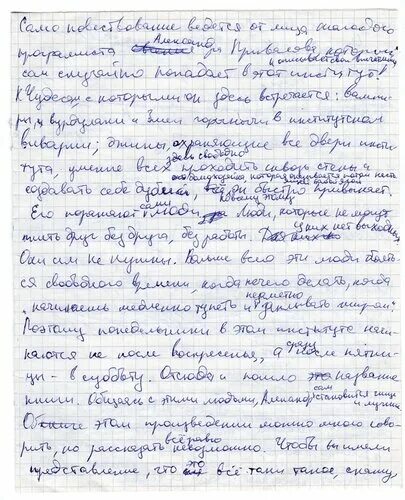 Само повествование ведется от лица молодого
программиста Александра Привалова, который
сам случайно попадает в этот институт.
К чудесам с которыми он здесь встречается: вампи-
ры, и вурдалаки и Змей Горыныч в институтском
виварии; джинны, охраняющие все двери инсти-
тута, умение всех здесь свободно проходить сквозь стены и
создавать себе дублей, всё он быстро привыкает.
Его поражают сами люди. Люди, которые не могут
жить друг без друга, без работы. У них нет выходных
Они им не нужны. Больше всего эти люди боят-
ся свободного времени, когда нечего делать, когда
"начинаешь медленно тупеть и заплывать жиром".
Поэтому понедельники в этом институте начи-
наются не после воскресенья, а сразу после пятни-
цы - в субботу. Отсюда и пошло название
книги. Общаясь с этими людьми, Александр сам становится
Об этом произведении можно много гово-
рить, но всё равно рассказать невозможно. Чтобы вы имели
представление, что это всё таки такое, скажу